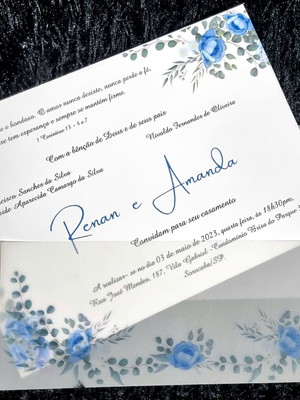 e bondoso. O amor nunca desiste, nunca perde a fé,
tem esperança e sempre se mantém firme.
1 Coríntios 13 - 4 a 7
Com a bênção de Deus e de seus pais
Nivaldo Fernandes de Oliveira
cisco Sanches da Silva
Aparecida Camargo da Silva
Renan e Amanda
Convidam para seu casamento
A realizar-se no dia 03 de maio de 2023, quarta feira, às 18h30pm,
Rua José Mendes, 187, Vila Gabriel -Condomínio Brisa do Parque
Sorocaba/SP.